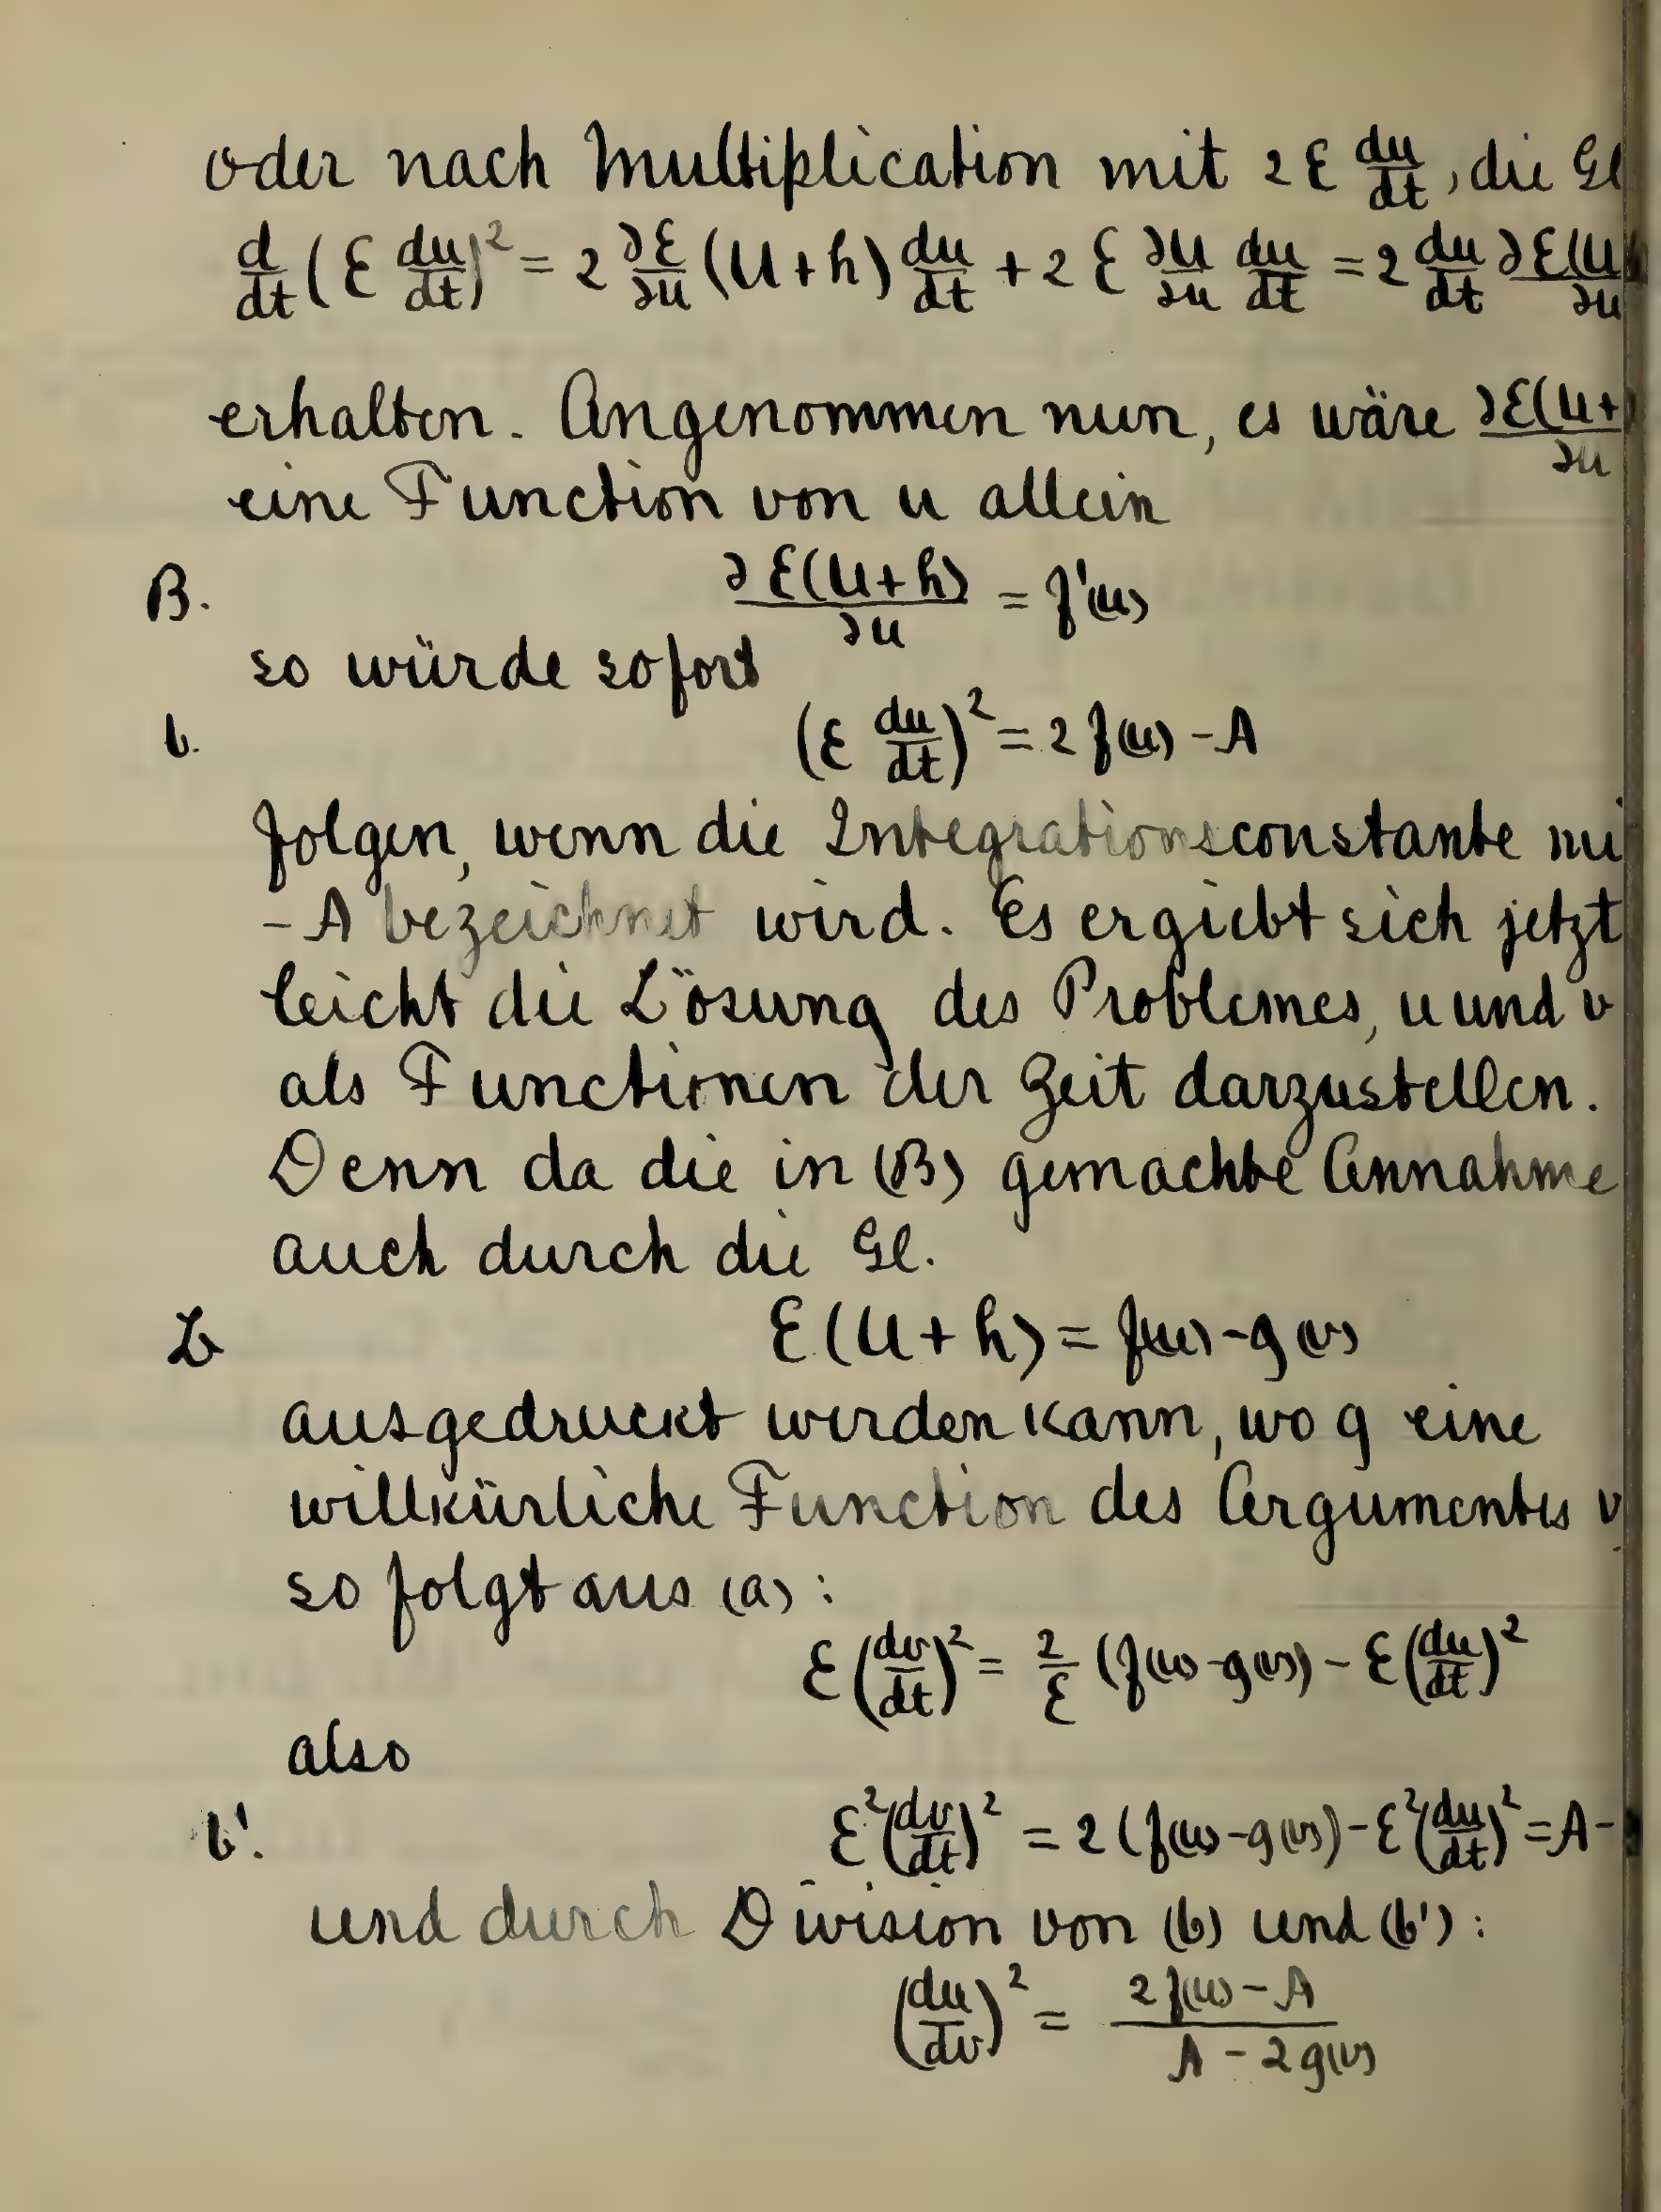 oder nach Multiplication mit 2 ℰ du/dt, die Gl
d/dt (ℰ du/dt)² = 2 ∂ℰ/∂u (U+h) du/dt + 2 ℰ ∂U/∂u du/dt = 2 du/dt ∂ℰ(U/∂u
erhalten. Angenommen nun, es wäre ∂ℰ(U+/∂u
eine Function von u allein
B. ∂ℰ(U+h)/∂u = f'(u)
so würde sofort
b. (ℰ du/dt)² = 2 f(u) - A
folgen, wenn die Integrationsconstante mi
- A bezeichnet wird. Es ergiebt sich jetzt
leicht die Lösung des Problemes, u und v
als Functionen der Zeit darzustellen.
Denn da die in (B) gemachte Annahme
auch durch die Gl.
ℰ(U+h) = f(u) - g(v)
ausgedruckt werden kann, wo g eine
willkürliche Function des Argumentes v
so folgt aus (a):
ℰ (dv/dt)² = 2/ℰ (f(u) - g(v)) - ℰ (du/dt)²
also
b'. ℰ² (dv/dt)² = 2 (f(u) - g(v)) - ℰ² (du/dt)² = A -
und durch Division von (b) und (b'):
(du/dv)² = 2f(u) - A / A - 2g(v)